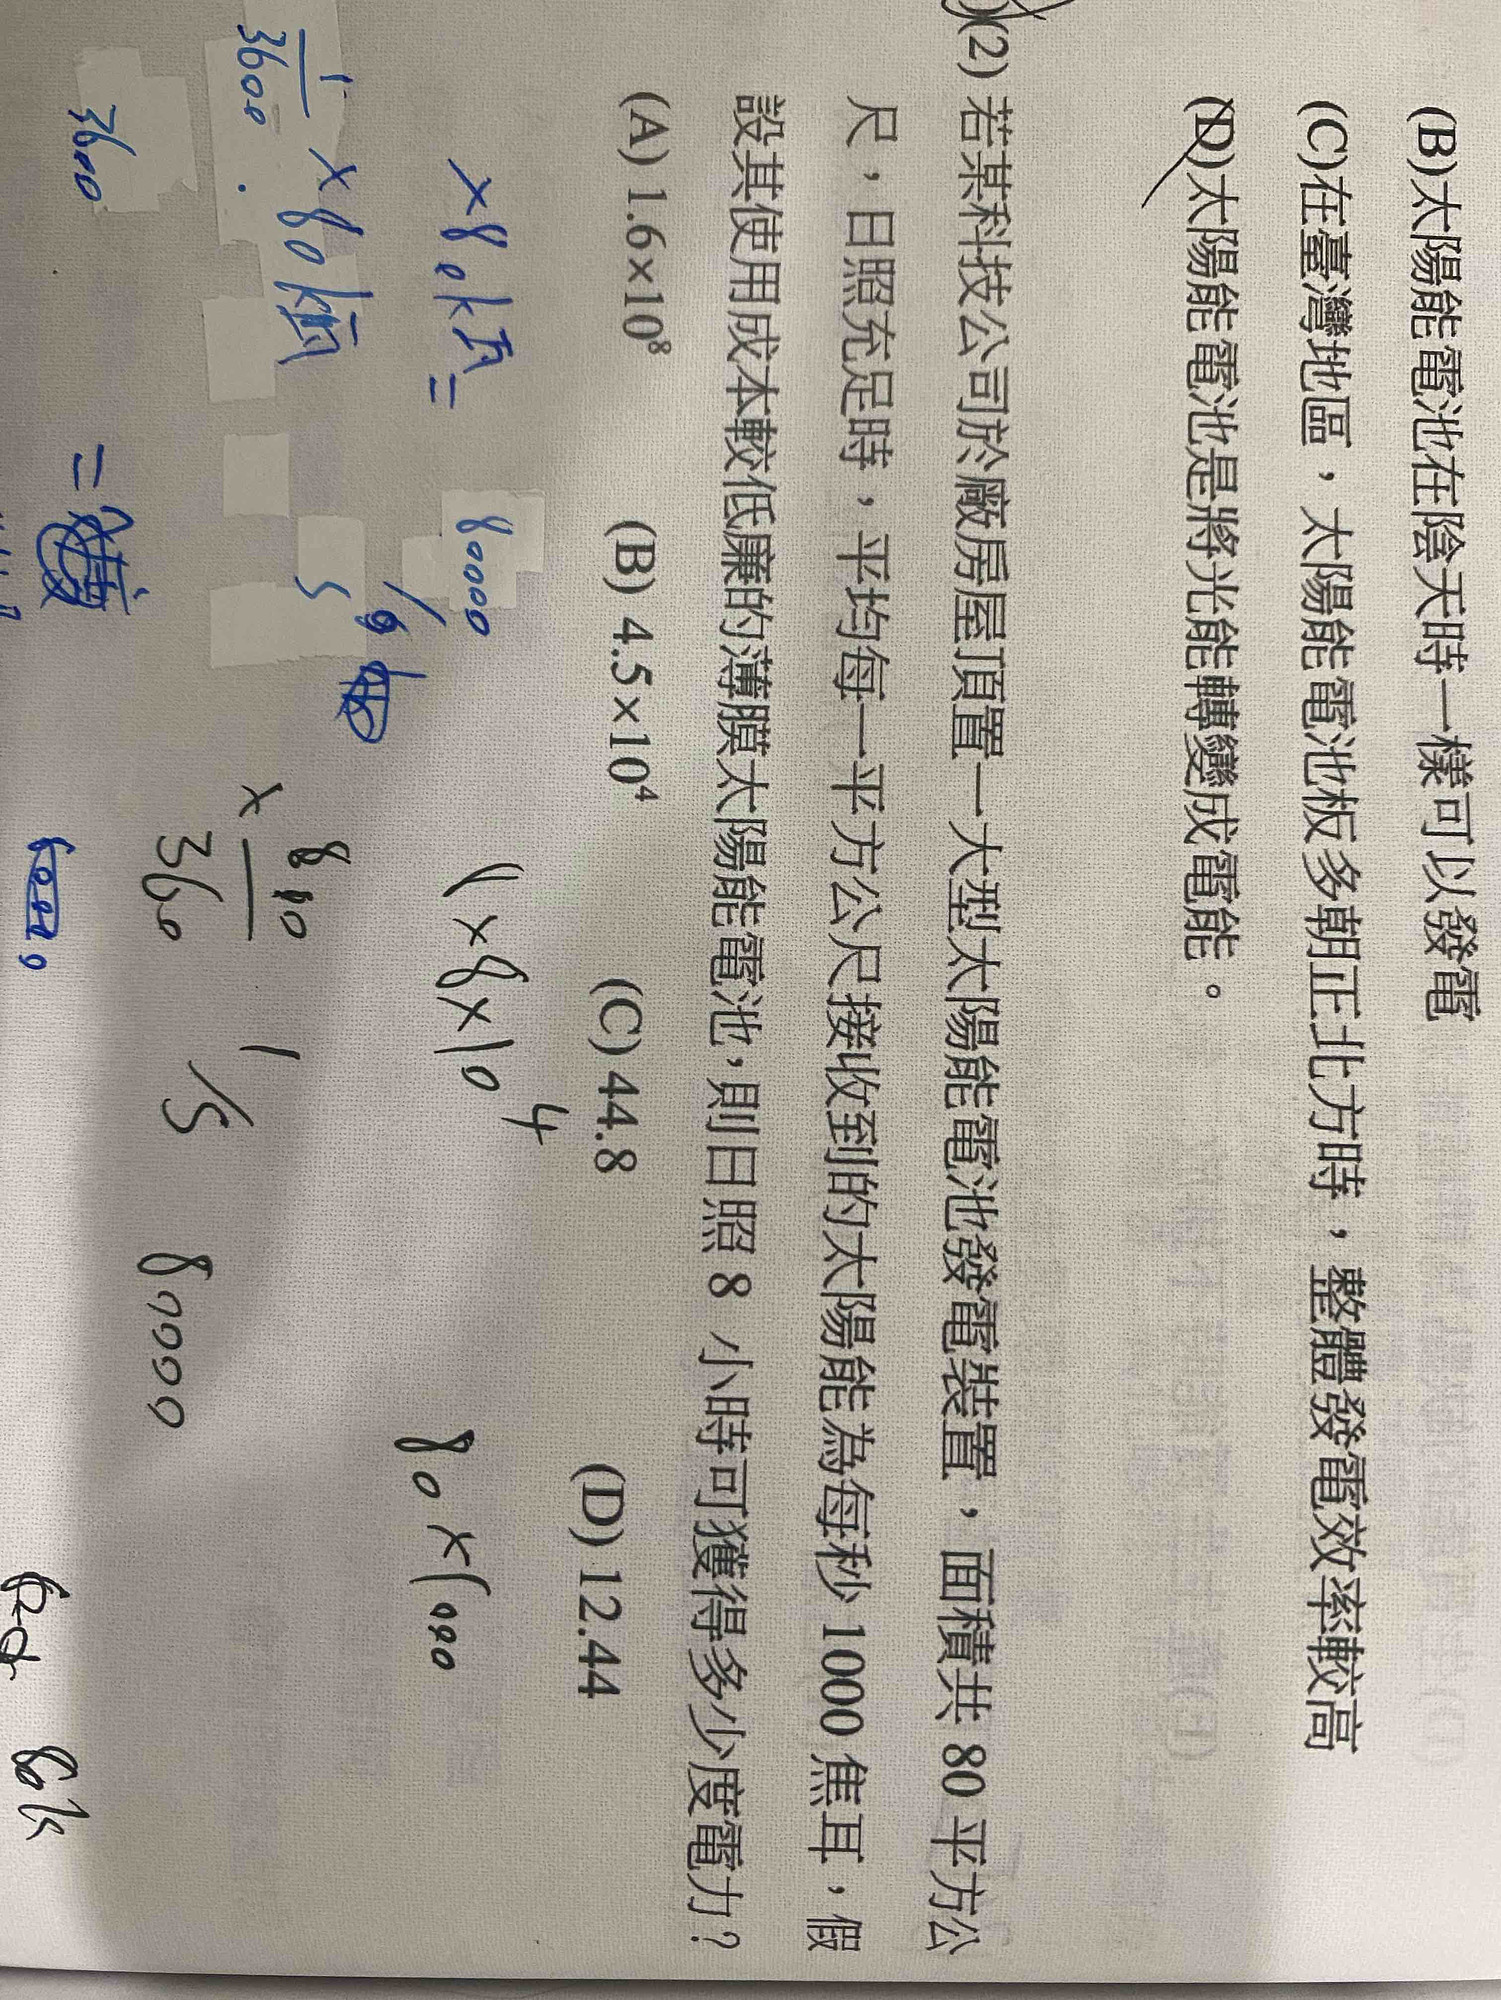 (B)太陽能電池在陰天時一樣可以發電
(C)在臺灣地區，太陽能電池板多朝正北方時，整體發電效率較高
(D)太陽能電池是將光能轉變成電能。
(2) 若某科技公司於廠房屋頂置一大型太陽能電池發電裝置，面積共 80 平方公
尺，日照充足時，平均每一平方公尺接收到的太陽能為每秒 1000 焦耳，假
設其使用成本較低廉的薄膜太陽能電池，則日照 8 小時可獲得多少度電力？
(A) 1.6×10⁸ (B) 4.5×10⁴ (C) 44.8 (D) 12.44
×80k瓦= 80000 1×8×10⁴ 80×1000
1/3600 ×80k
×800/3600 1/s 80000
3600 =
80k